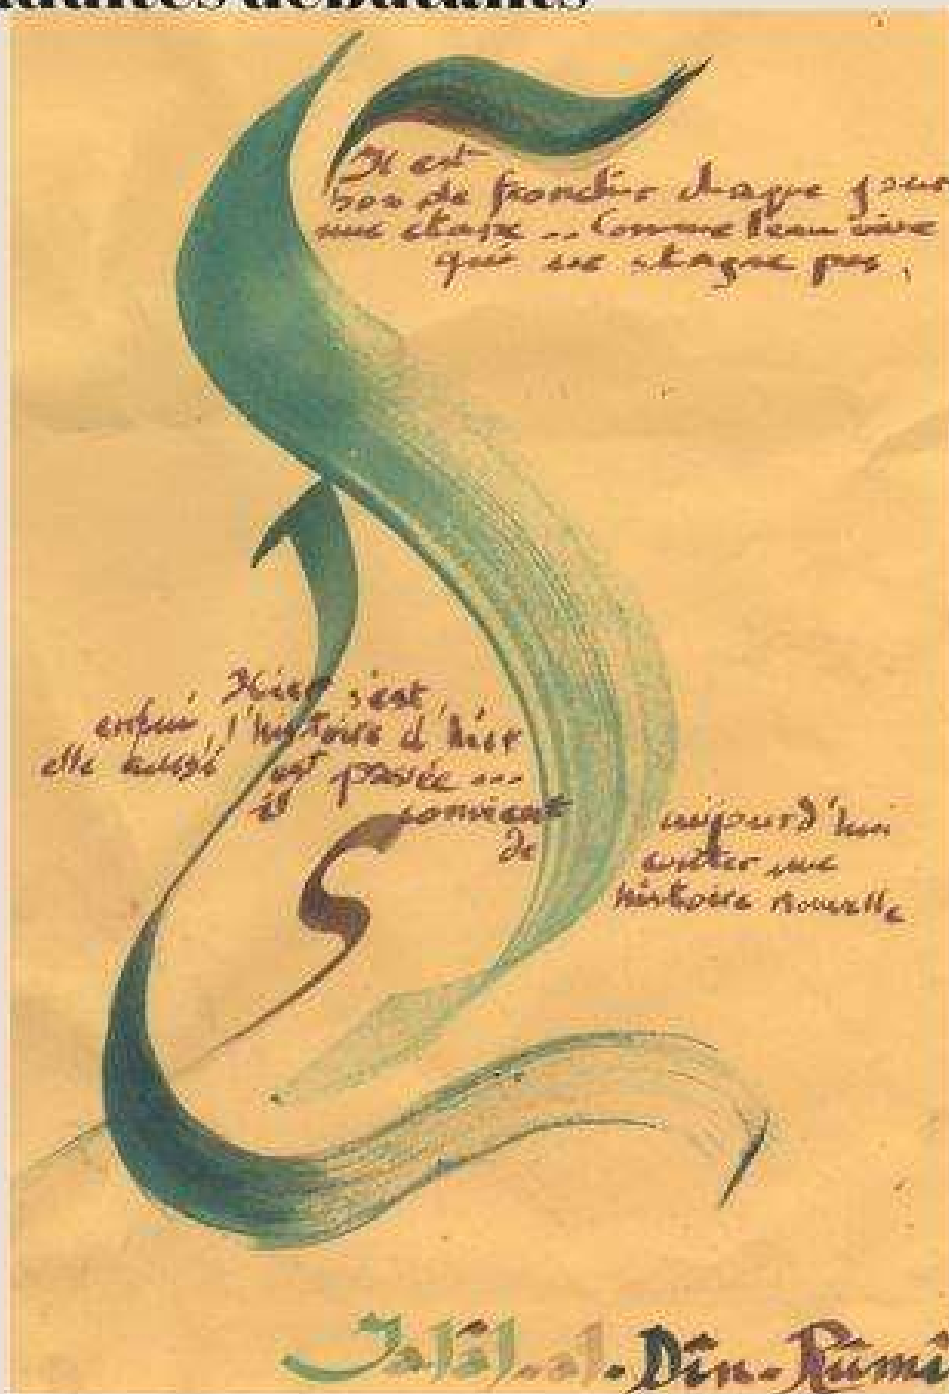 adultes débutants
Il est
bon de franchir chaque jour
une étape... Comme l'eau vive
qui ne stagne pas.
Hier s'est
enfui, l'histoire d'hier
elle aussi est passée...
il convient
de
aujourd'hui
conter une
histoire nouvelle
Jalâl-al-Dîn-Rûmî